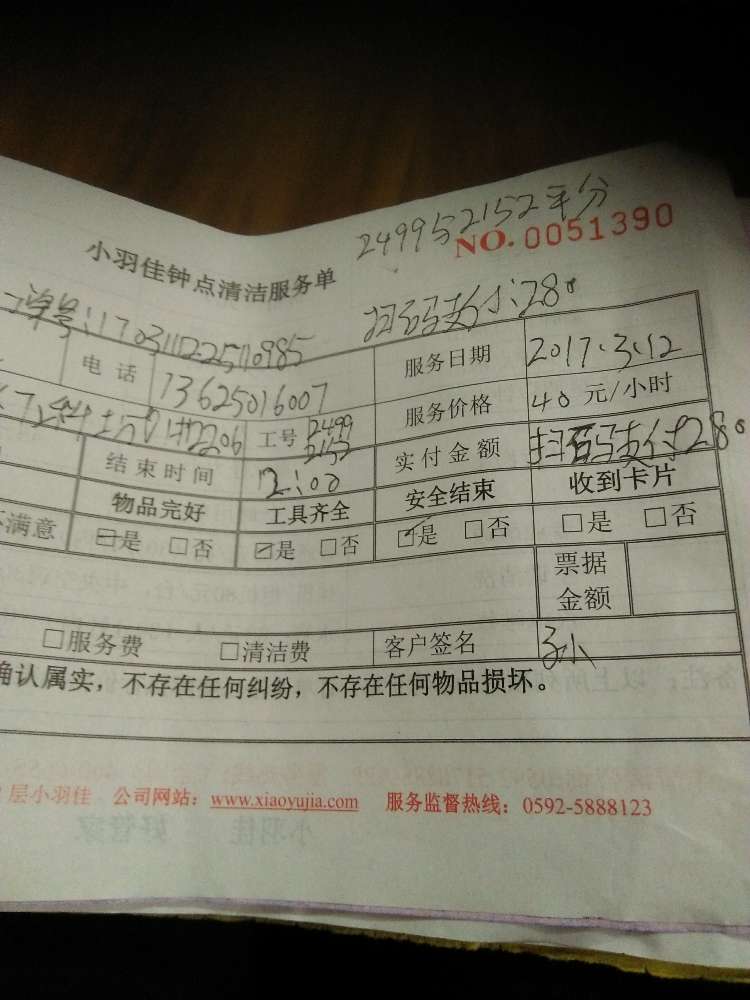 2499与2152平分
NO. 0051390
小羽佳钟点清洁服务单
扫码支付:280
单号:17031122510985
电话 13625016007 服务日期 2017.3.12
2206 工号 2499 2152 服务价格 40元/小时
结束时间 12:00 实付金额 扫码支付280
物品完好 工具齐全 安全结束 收到卡片
不满意 ☑是 □否 ☑是 □否 ☑是 □否 □是 □否
票据金额
□服务费 □清洁费 客户签名 孙
确认属实,不存在任何纠纷,不存在任何物品损坏。
层小羽佳 公司网站:www.xiaoyujia.com 服务监督热线:0592-5888123